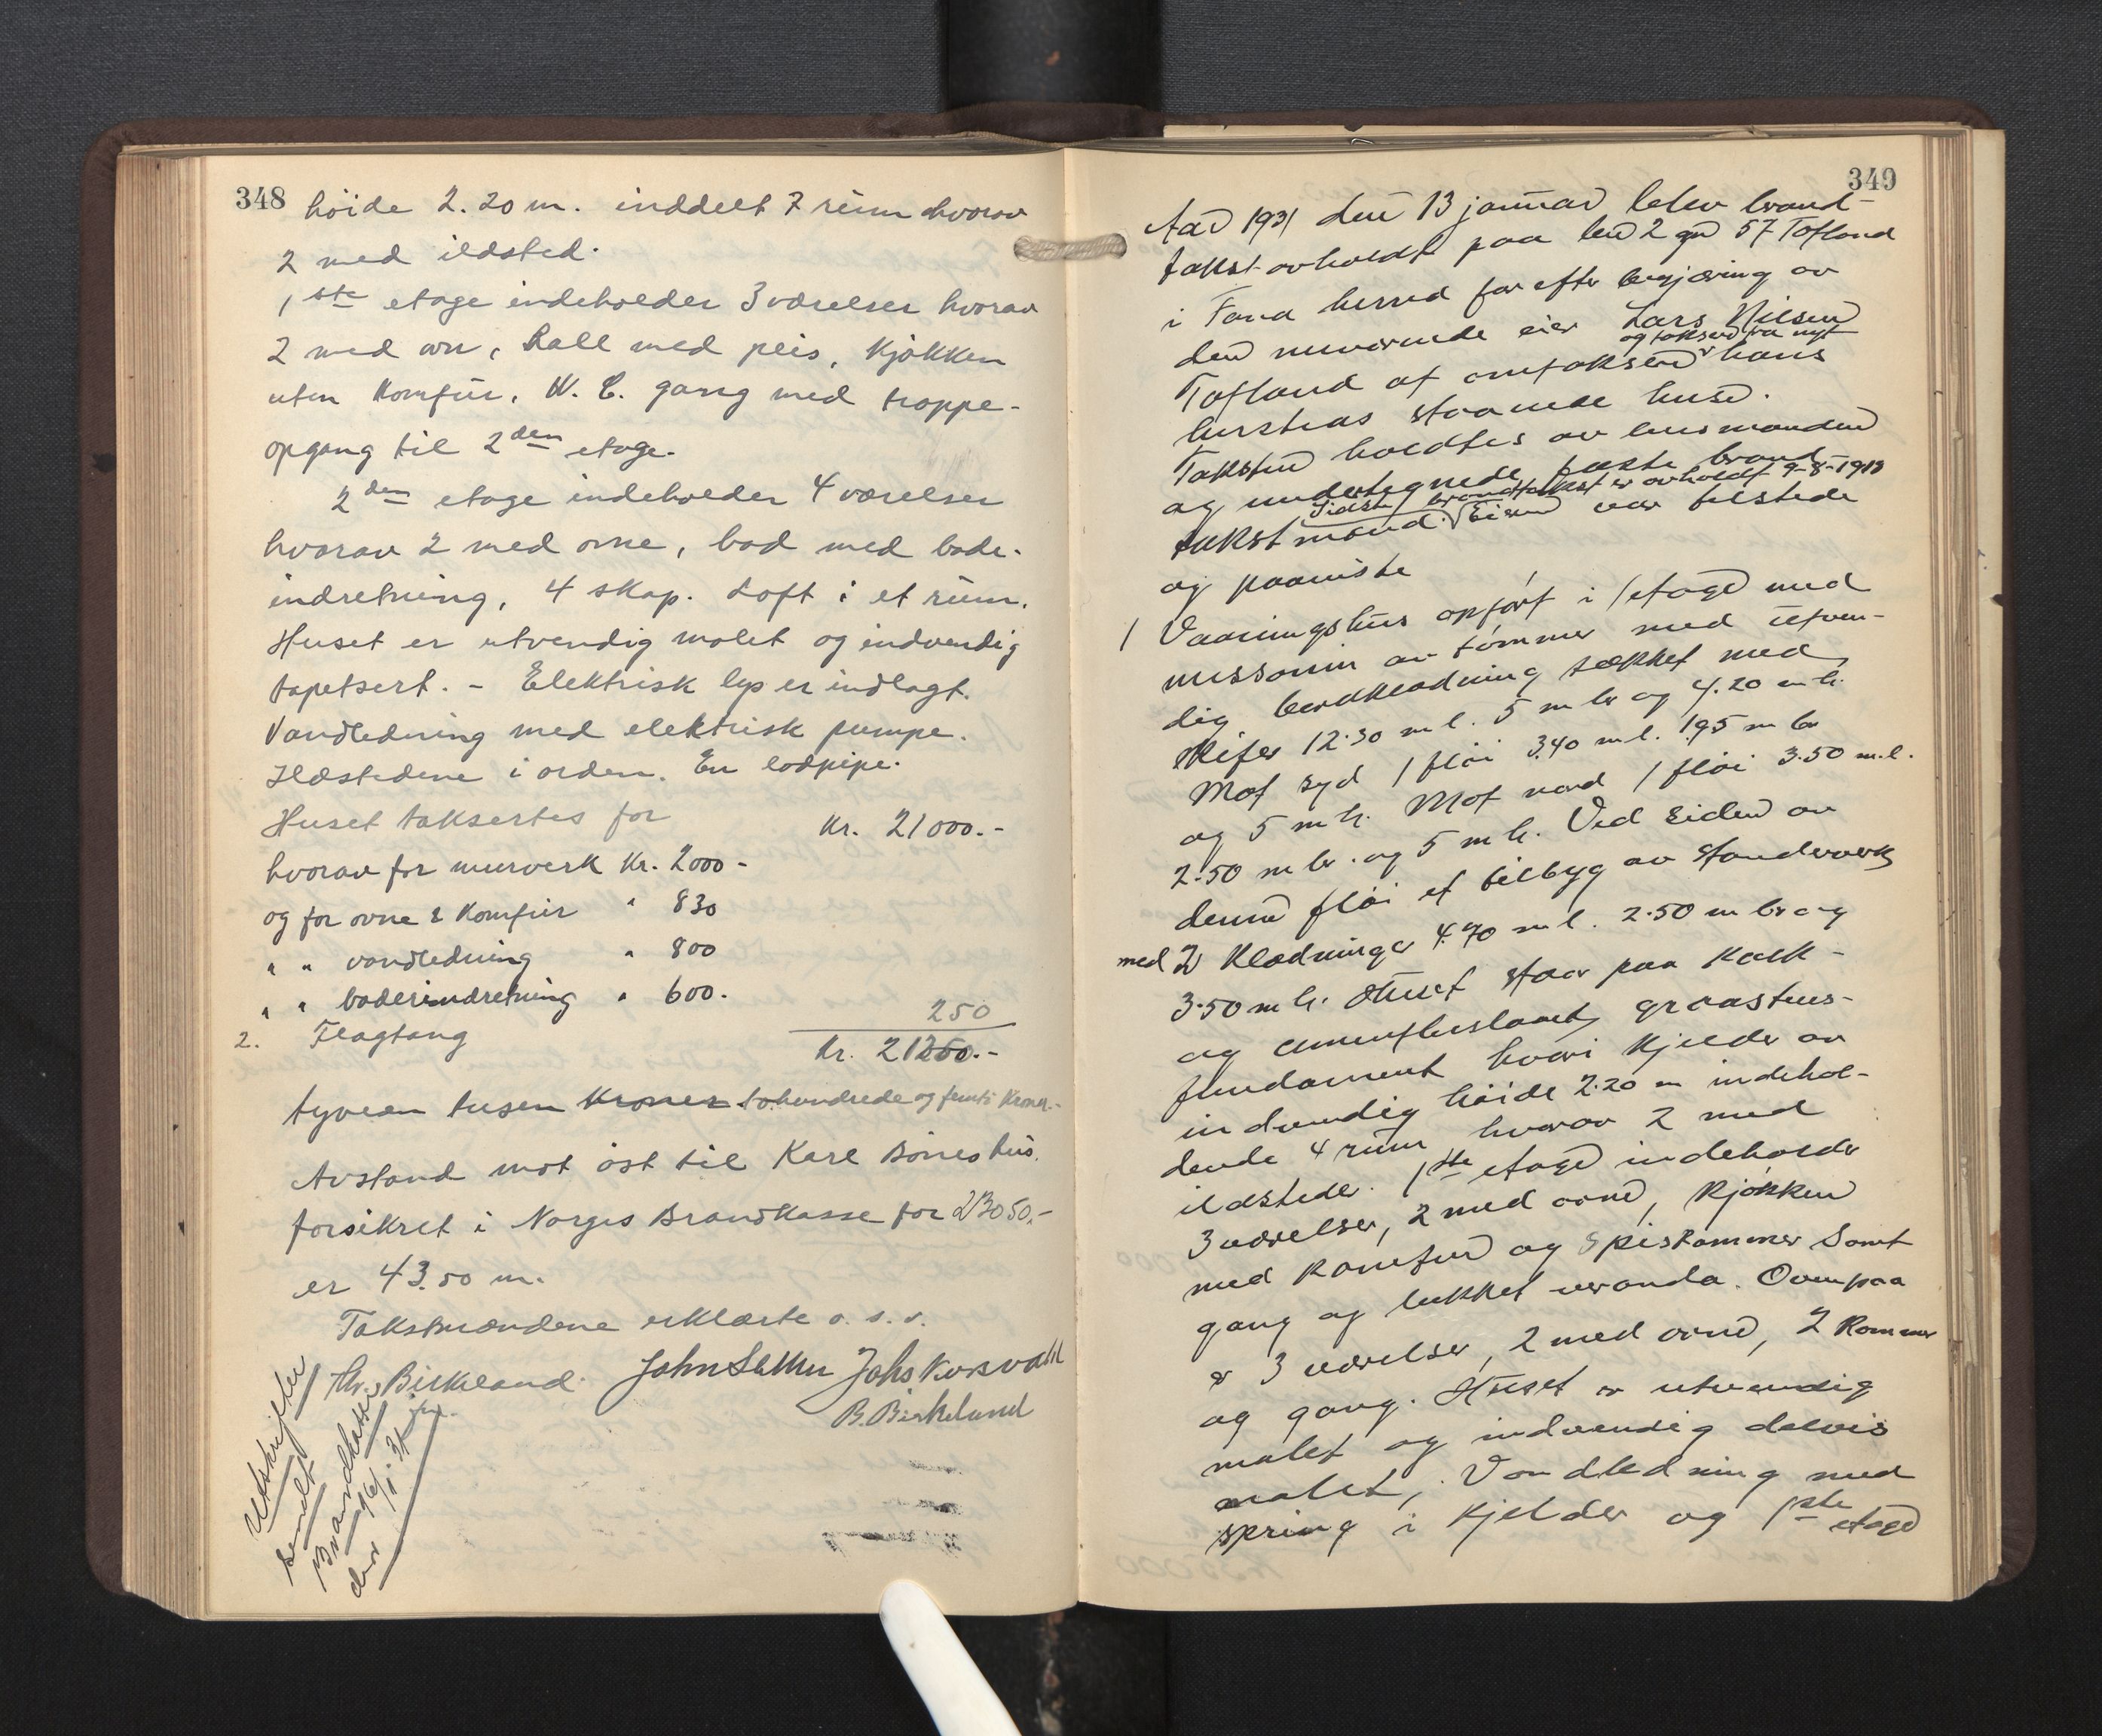 348
høide 2.20 m. inddelt 7 rum hvorav
2 med ildsted.
1ste etage indeholder 3 værelser hvorav
2 med ovn, Hall med peis, Kjøkken
uten Komfur, W. C. gang med trappe-
opgang til 2den etage.
2den etage indeholder 4 værelser
hvorav 2 med ovne, bad med bade-
indretning, 4 skap. Loft i et rum.
Huset er utvendig malet og indvendig
tapetsert. - Elektrisk lys er indlagt.
Vandledning med elektrisk pumpe.
Ildstedene i orden. En lodpipe.
Huset taksertes for Kr. 21000.-
hvorav for murverk Kr. 2000 -
og for ovne & Komfur " 830
" " vandledning " 800
" " badeindretning " 600.
2. Flagstang 250
Kr. 21250.-
tyveen tusen Kroner tohundrede og femti Kroner.-
Avstand mot øst til Karl Bønes hus
forsikret i Norges Brandkasse for 23050.-
er 43.50 m.
Takstmændene erklærte o. s. v.
Chr. Birkeland John Sætter Johs Korsvold
B. Birkelund
Utskrifter
sendt
Brandkassen
den 16/1. 31
349
Aar 1931 den 13 januar blev brand-
takst avholdt paa bno 2 gno 57 Tofland
i Fana herred for efter begjæring av
den nuværende eier Lars Nilsen
og taksere paa nyt
Tofland at omtaksere hans
herstaas staaende huse.
Taksten holdtes av lensmanden
og undertegnede faste brand
Sidste brandtakst er avholdt 9-8-1913
takstmænd. Eieren var tilstede
og paaviste
1 Vaaningshus opført i 1 etage med
messanin av tømmer med utven-
dig bordklædning tækket med
skifer 12.30 m l. 5 m br og 4.20 m h.
Mot syd 1 fløi 3.40 m l. 1.95 m br
og 5 m h. Mot nord 1 fløi 3.50 m.l.
2.50 m br. og 5 m h. Ved siden av
denne fløi et tilbyg av standerverk
med 2 Klædninger 4.70 m l. 2.50 m br og
3.50 m h. Huset staar paa Kalk-
og cementbeslaaet graastens-
fundament hvori Kjelder av
indvendig høide 2.20 m indehol-
dende 4 rum hvorav 2 med
ildstede. 1ste etage indeholder
3 værelser, 2 med ovne, Kjøkken
med Komfur og Spiskammer Samt
gang og lukket veranda. Ovenpaa
er 3 værelser, 2 med ovne, 2 Kammer
og gang. Huset er utvendig
malet og indvendig delvis
malet, Vandledning med
spring i Kjelder og 1ste etage